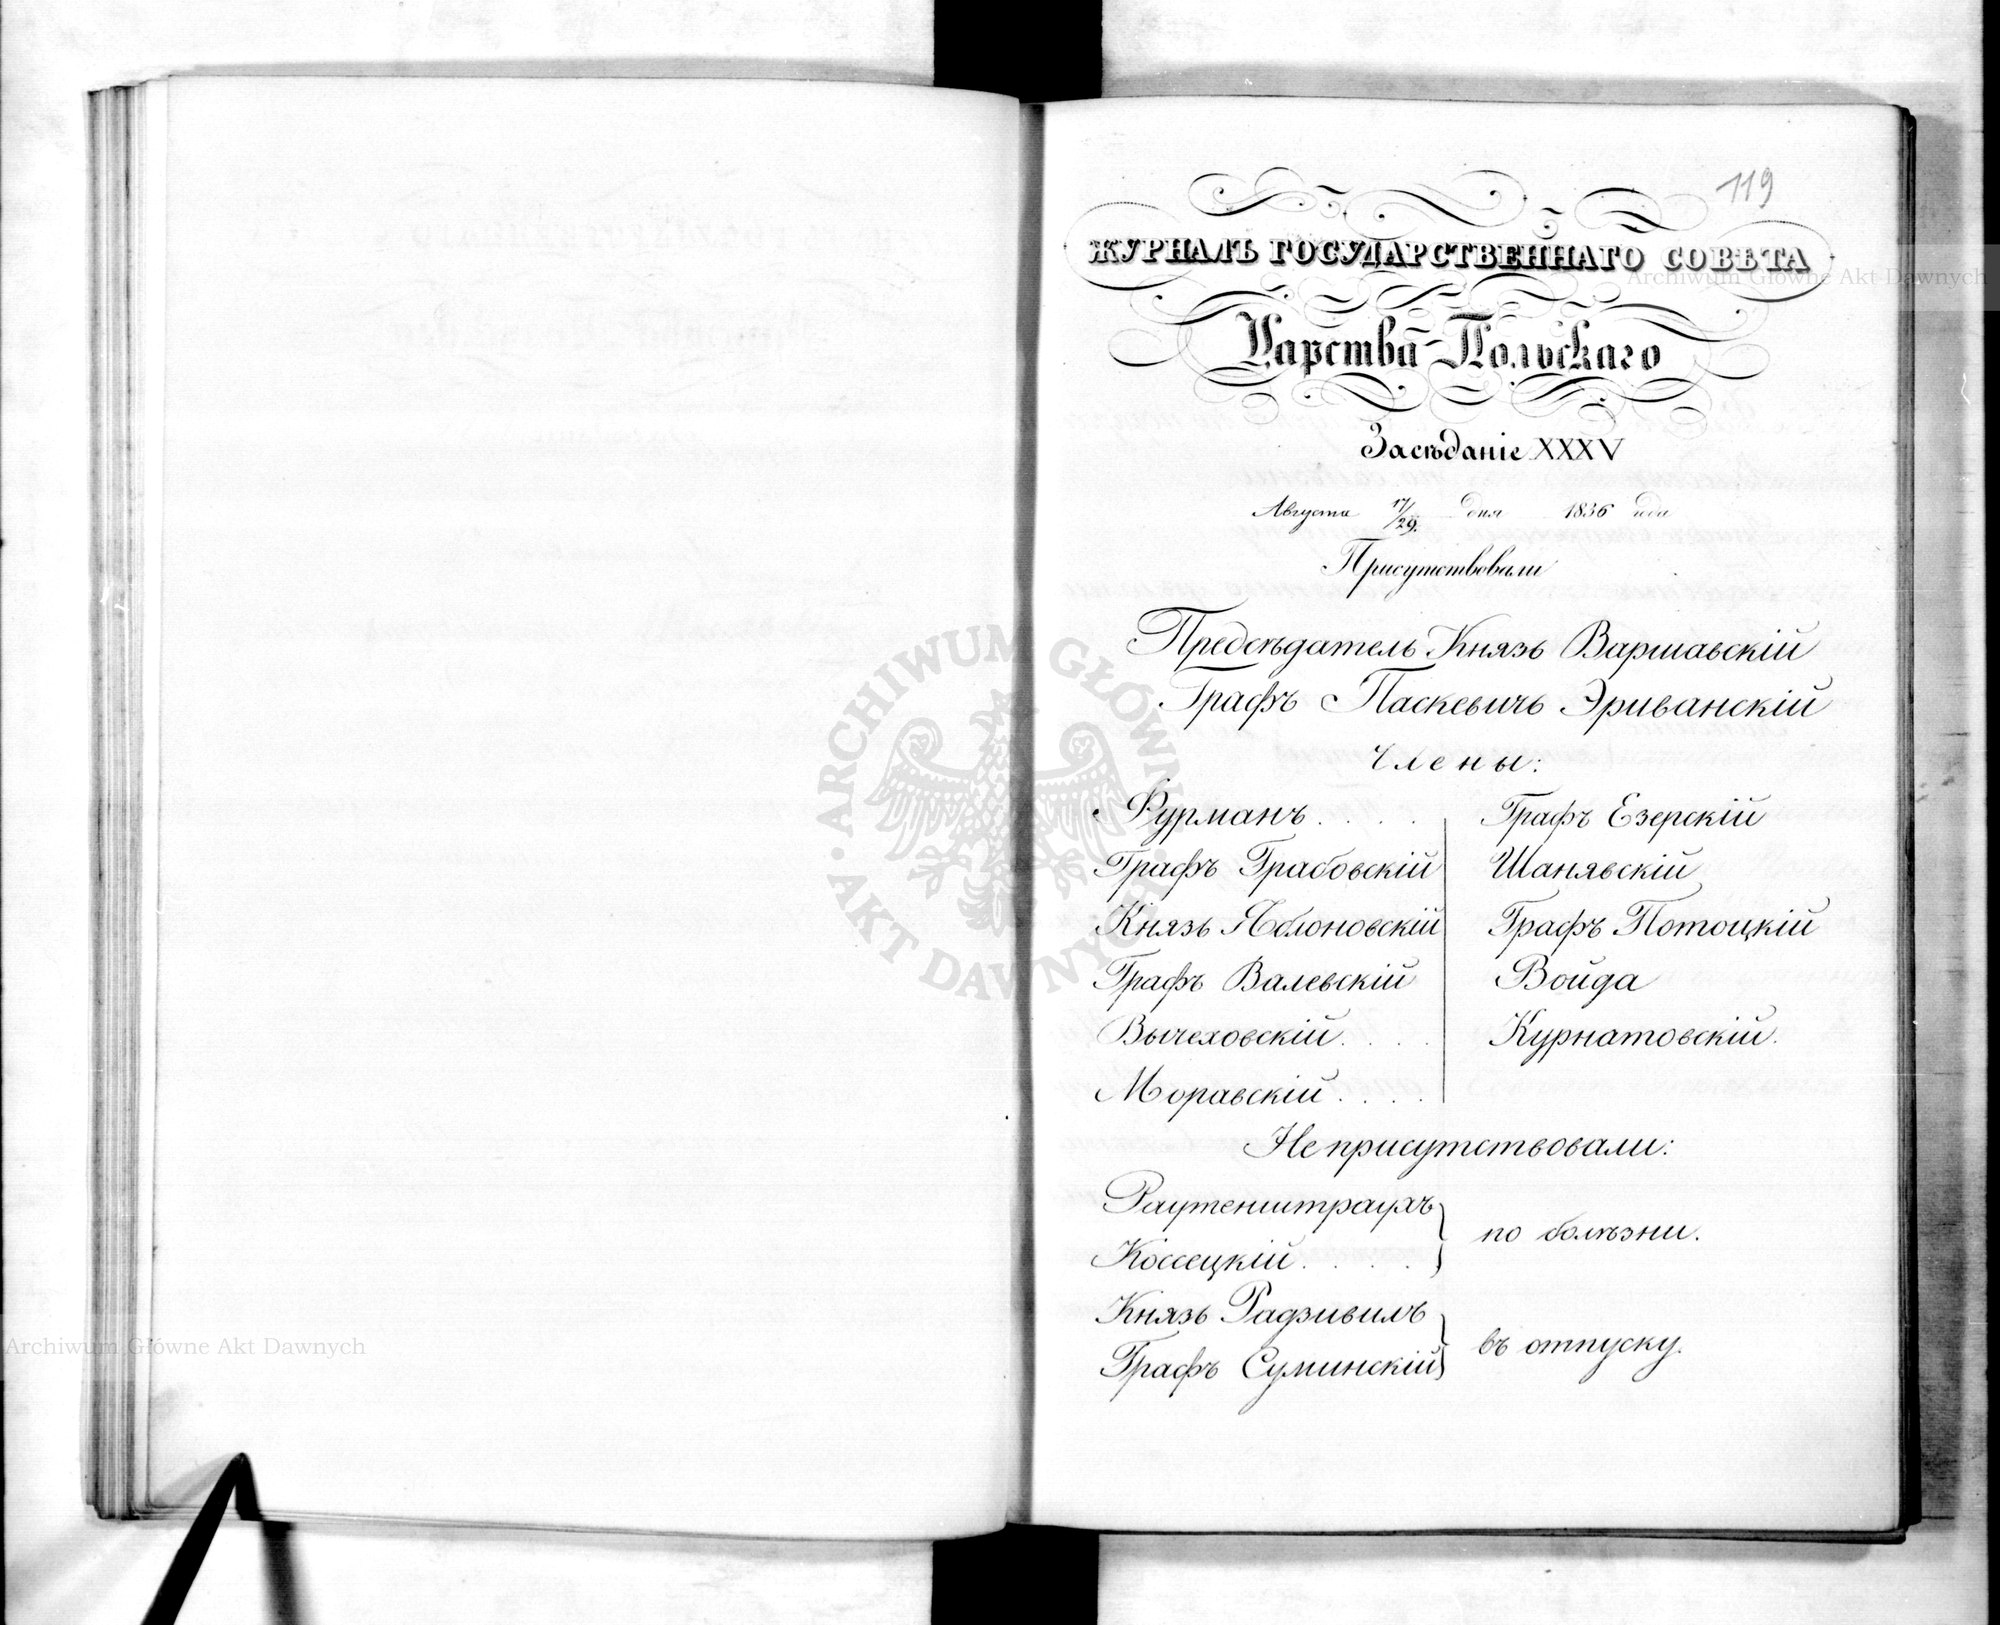 119
ЖУРНАЛЪ ГОСУДАРСТВЕННАГО СОВѢТА
Царства Польскаго
Засѣданіе XXXV
Августа 17/29. дня 1836 года
Присутствовали
Предсѣдатель Князь Варшавскій
Графъ Паскевичь Эриванскій
Члены:
Фурманъ . . . . Графъ Езерскій
Графъ Грабовскій Шанявскій
Князь Яблоновскій Графъ Потоцкій
Графъ Валевскій Война
Вычеховскій . . . . Курнатовскій.
Моравскій . . . .
Не присутствовали:
Раутенштраухъ
Коссецкій . . . . по болѣзни.
Князь Радзивилъ
Графъ Суминскій въ отпуску.
ARCHIWUM GŁÓWNE AKT DAWNYCH
Archiwum Główne Akt Dawnych
Archiwum Główne Akt Dawnych